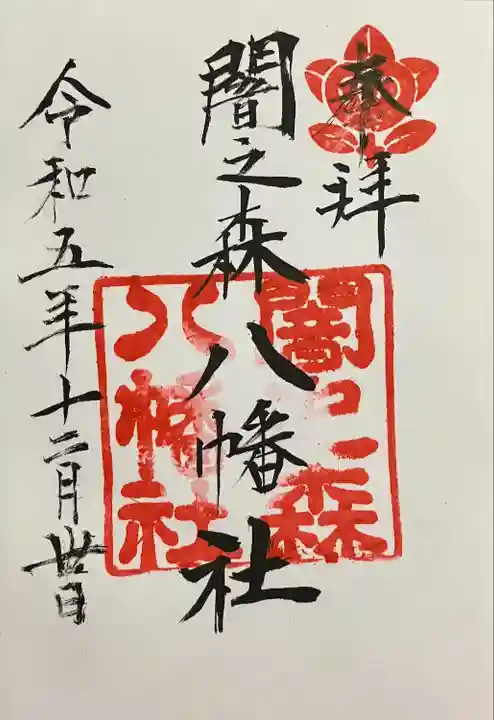 奉拝
闇之森八幡社
闇之森
八幡社
令和五年十二月丗日